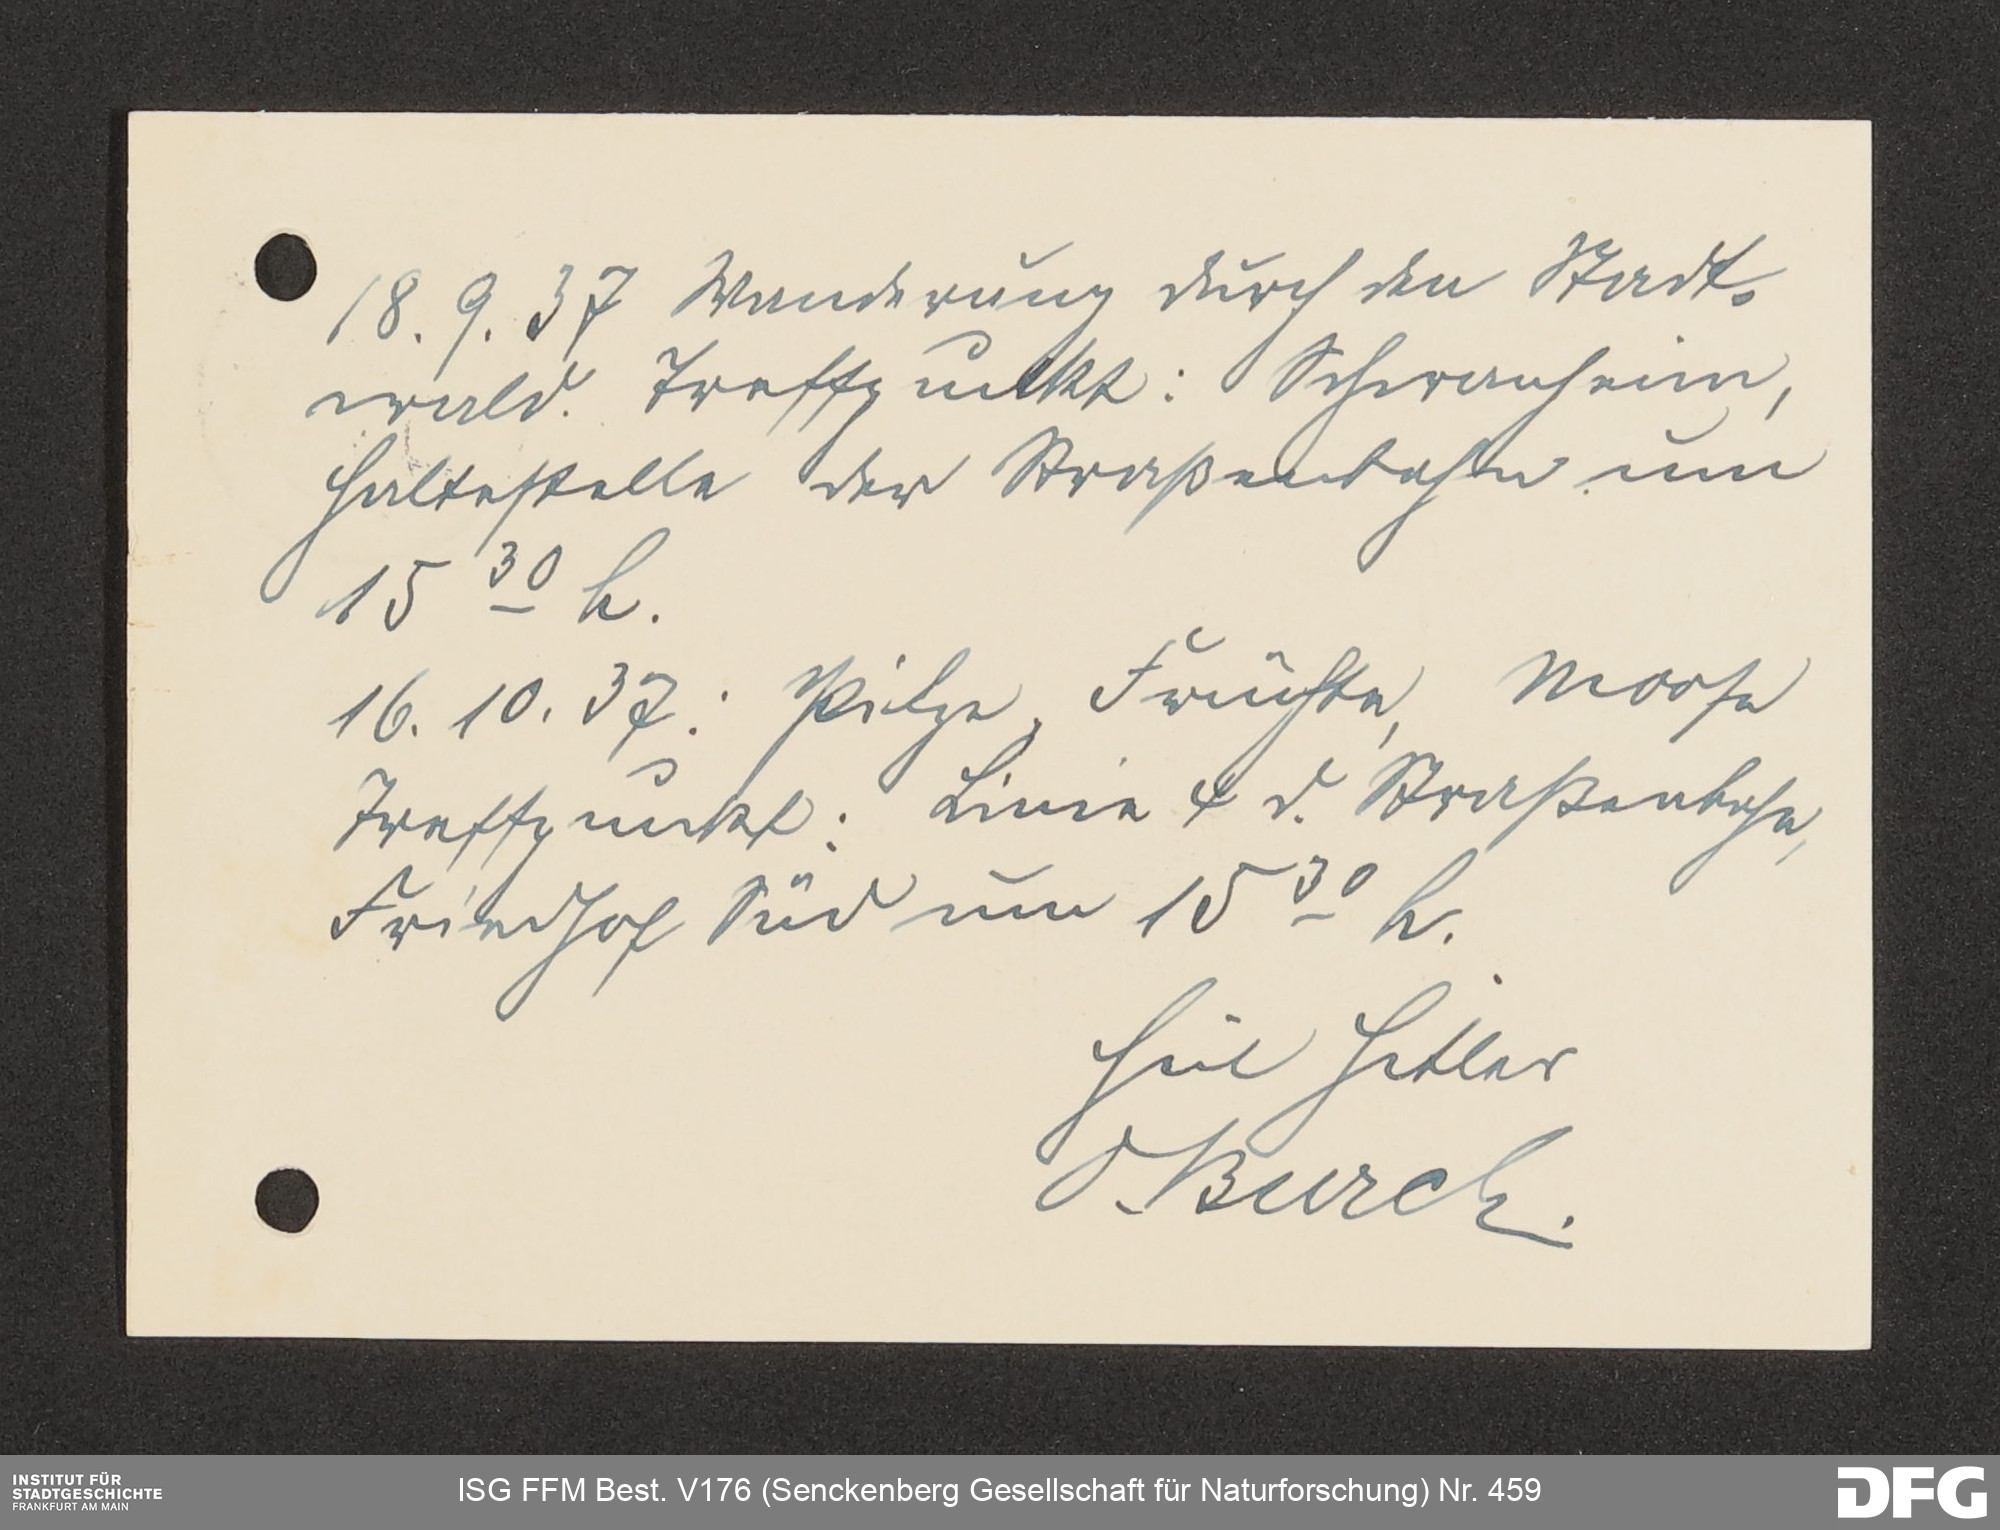 18. 9. 37 Wanderung durch den Stadt-
wald. Treffpunkt: Schwanheim,
Haltestelle der Straßenbahn um
15 30 h.
16. 10. 37: Pilze, Früchte, Moose
Treffpunkt: Linie 4 d. Straßenbahn,
Friedhof Süd um 15 30 h.
Heil Hitler
O. Burck.
INSTITUT FÜR
STADTGESCHICHTE
FRANKFURT AM MAIN
ISG FFM Best. V176 (Senckenberg Gesellschaft für Naturforschung) Nr. 459
DFG